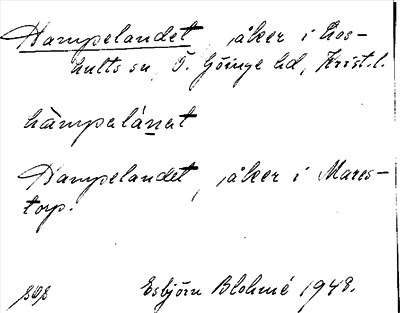 Hampelandet, åker i Los-
hults sn, Ö. Göinge hd, Krist. l.
hàmpelánat
Hampelandet, åker i Mares-
torp.
Esbjörn Blohmé 1948.